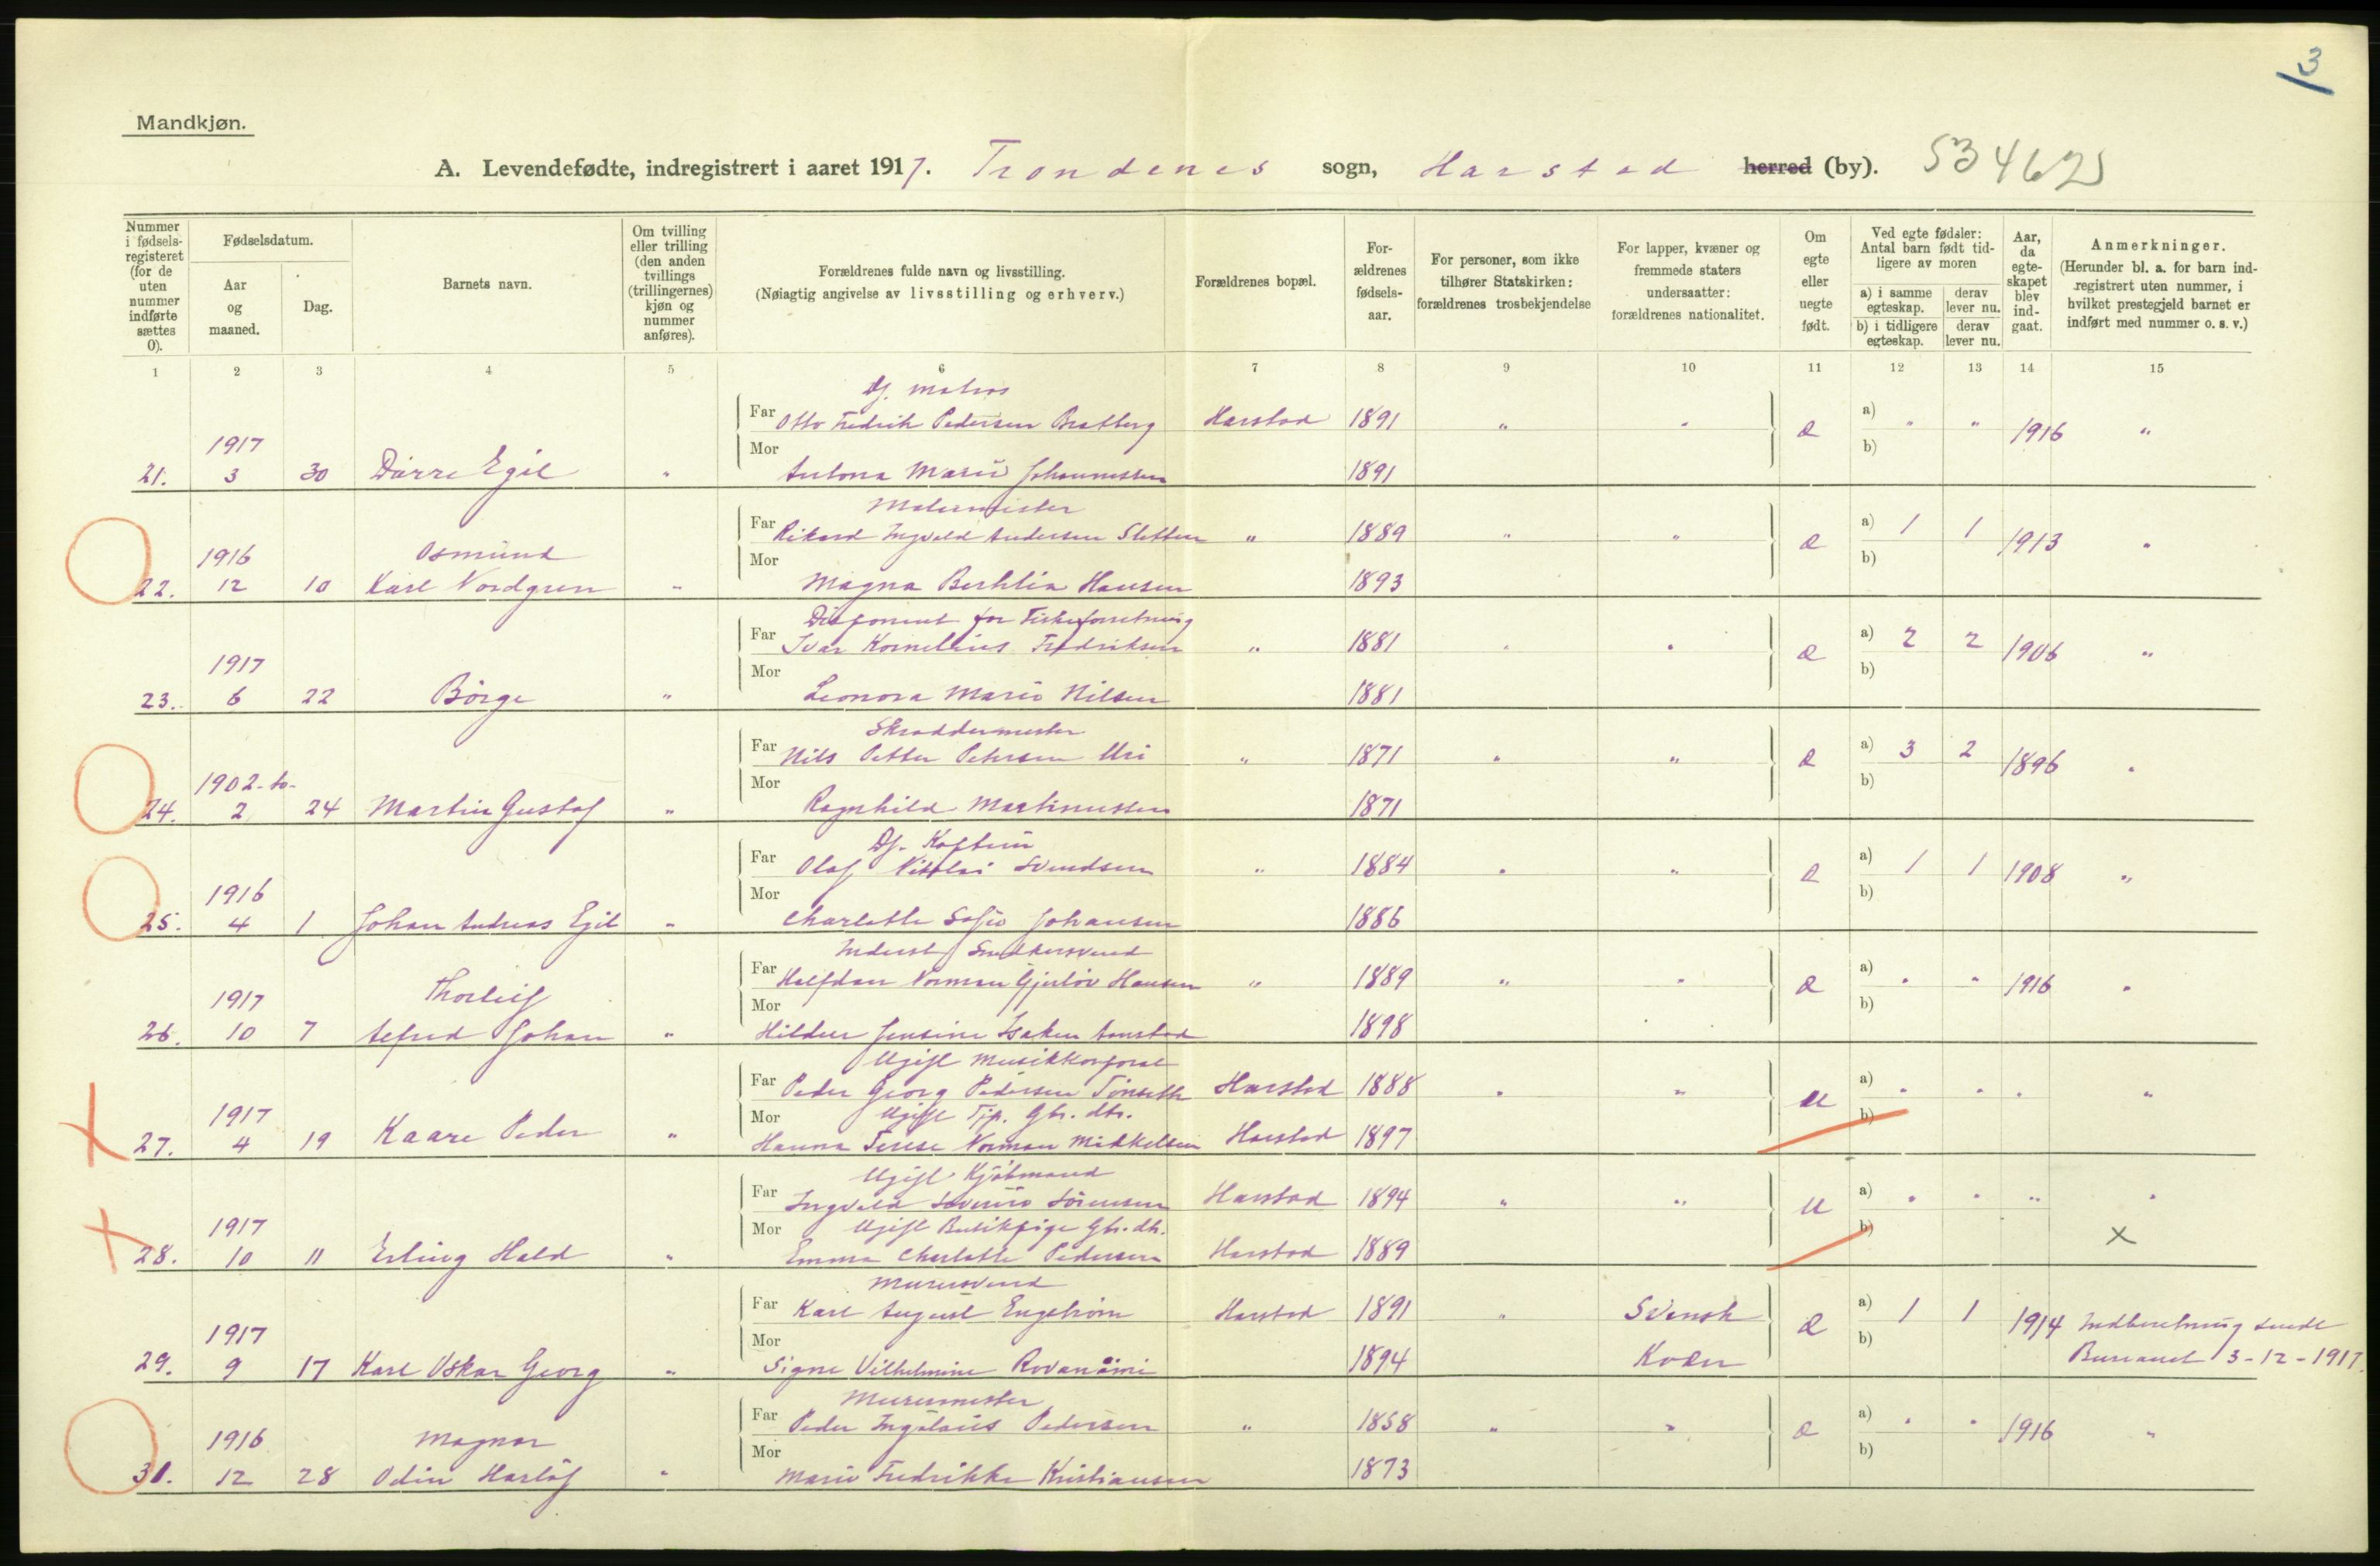 3
Mandkjøn.
A. Levendefødte, indregistrert i aaret 1917. Trondenes sogn, Harstad herred (by). 53462
Nummer i fødselsregisteret (for de uten nummer indførte sættes 0).
Fødselsdatum.
Aar og maaned.
Dag.
Barnets navn.
Om tvilling eller trilling (den anden tvillings (trillingernes) kjøn og nummer anføres).
Forældrenes fulde navn og livsstilling.
(Nøiagtig angivelse av livsstilling og erhverv.)
Forældrenes bopæl.
Forældrenes fødselsaar.
For personer, som ikke tilhører Statskirken: forældrenes trosbekjendelse
For lapper, kvæner og fremmede staters undersaatter: forældrenes nationalitet.
Om egte eller uegte født.
Ved egte fødsler: Antal barn født tidligere av moren
a) i samme egteskap.
derav lever nu.
b) i tidligere egteskap.
derav lever nu.
Aar, da egteskapet blev indgaat.
Anmerkninger.
(Herunder bl. a. for barn indregistrert uten nummer, i hvilket prestegjeld barnet er indført med nummer o. s. v.)
1 2 3 4 5 6 7 8 9 10 11 12 13 14 15
Df. matros
Far Otto Fedrik Pedersen Bratberg Harstad 1891 " " a) " " 1916 "
1917
21. 3 30 Dürre Egil " Mor Antona Marie Johannessen 1891 b)
Malermester
Far Rikard Ingvald Andersen Sletten " 1889 " " a) 1 1 1913 "
1916 Osmund
22. 12 10 Karl Nordgren " Mor Magna Berhlia Hansen 1893 b)
Disponent for Fiskeforretning
Far Ivar Kornelius Fredriksen " 1881 " " a) 2 2 1906 "
1917
23. 6 22 Börge " Mor Leonora Marie Nilsen 1881 b)
Skræddermester
Far Nils Petter Petersen Uri " 1871 " " a) 3 2 1896 "
1902
24. 2 24 Martin Gustaf " Mor Ragnhild Martinussen 1871 b)
Df. Kaptein
Far Olaf Nikolai Svendsen " 1884 " " a) 1 1 1908 "
1916
25. 4 1 Johan Andreas Egil " Mor Charlotte Sofie Johansen 1886 b)
Inderst Snedkersvend
Far Halfdan Norman Gjerlöv Hansen " 1889 " " a) " " 1916 "
1917 Thorleif
26. 10 7 Alfred Johan " Mor Hildur Jensine Isaken Aanstad 1898 b)
Ugift Musikkorporal
Far Peder Georg Pedersen Tönseth Harstad 1888 " " u a) " " " "
1917 Ugift Tjp. Gbr. dtr.
27. 4 19 Kaare Peder " Mor Hanna Terese Norman Mikkelsen Harstad 1897 b)
Ugift Kjöbmand
Far Ingvald Severin Sörensen Harstad 1894 " " u a) " " " "
1917 Ugift Butikpige Gbr. dtr.
28. 10 11 Erling Hald " Mor Emma Charlotte Pedersen Harstad 1889 b) X
Murersvend
Far Karl August Engström Harstad 1891 " Svensk a) 1 1 1914 Indberetning sendt
1917
29. 9 17 Karl Oskar Georg " Mor Signe Vilhelmine Rovanämi 1894 Kvæn b) Bureauet 3-12-1917.
Murermester
Far Peder Ingolaus Pedersen " 1858 " " a) " " 1916 "
1916 Magnar
30. 12 28 Odin Harlöf " Mor Marie Fredrikke Kristiansen 1873 b)